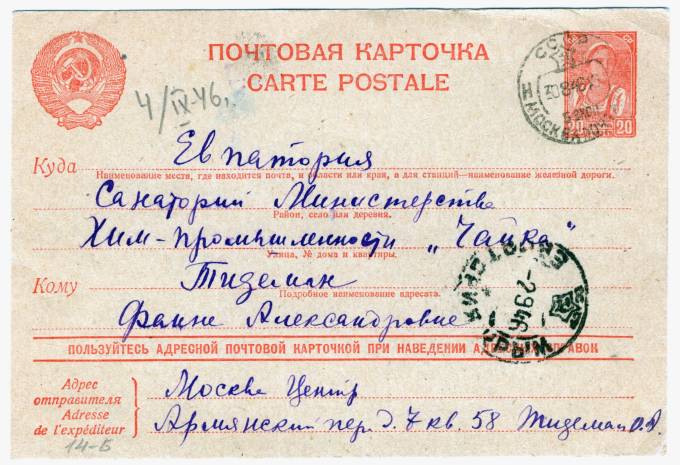 ПОЧТОВАЯ КАРТОЧКА
CARTE POSTALE
4/IX-46.
СССР
30 8 46
МОСКВА
20 20
Куда Евпатория
Наименование места, где находится почта, и области или края, а для станций—наименование железной дороги.
Санаторий Министерства
Район, село или деревня.
Хим-промышленности „Чайка“
Улица, № дома и квартиры.
Кому Тидеман
Подробное наименование адресата.
Фаине Александровне
-2 9 46
КРЫМ
ПОЛЬЗУЙТЕСЬ АДРЕСНОЙ ПОЧТОВОЙ КАРТОЧКОЙ ПРИ НАВЕДЕНИИ АДРЕСНЫХ СПРАВОК
Адрес
отправителя
Adresse
de l'expéditeur
Москва Центр
Армянский пер д. 7 кв. 58 Тидеман
14-Б